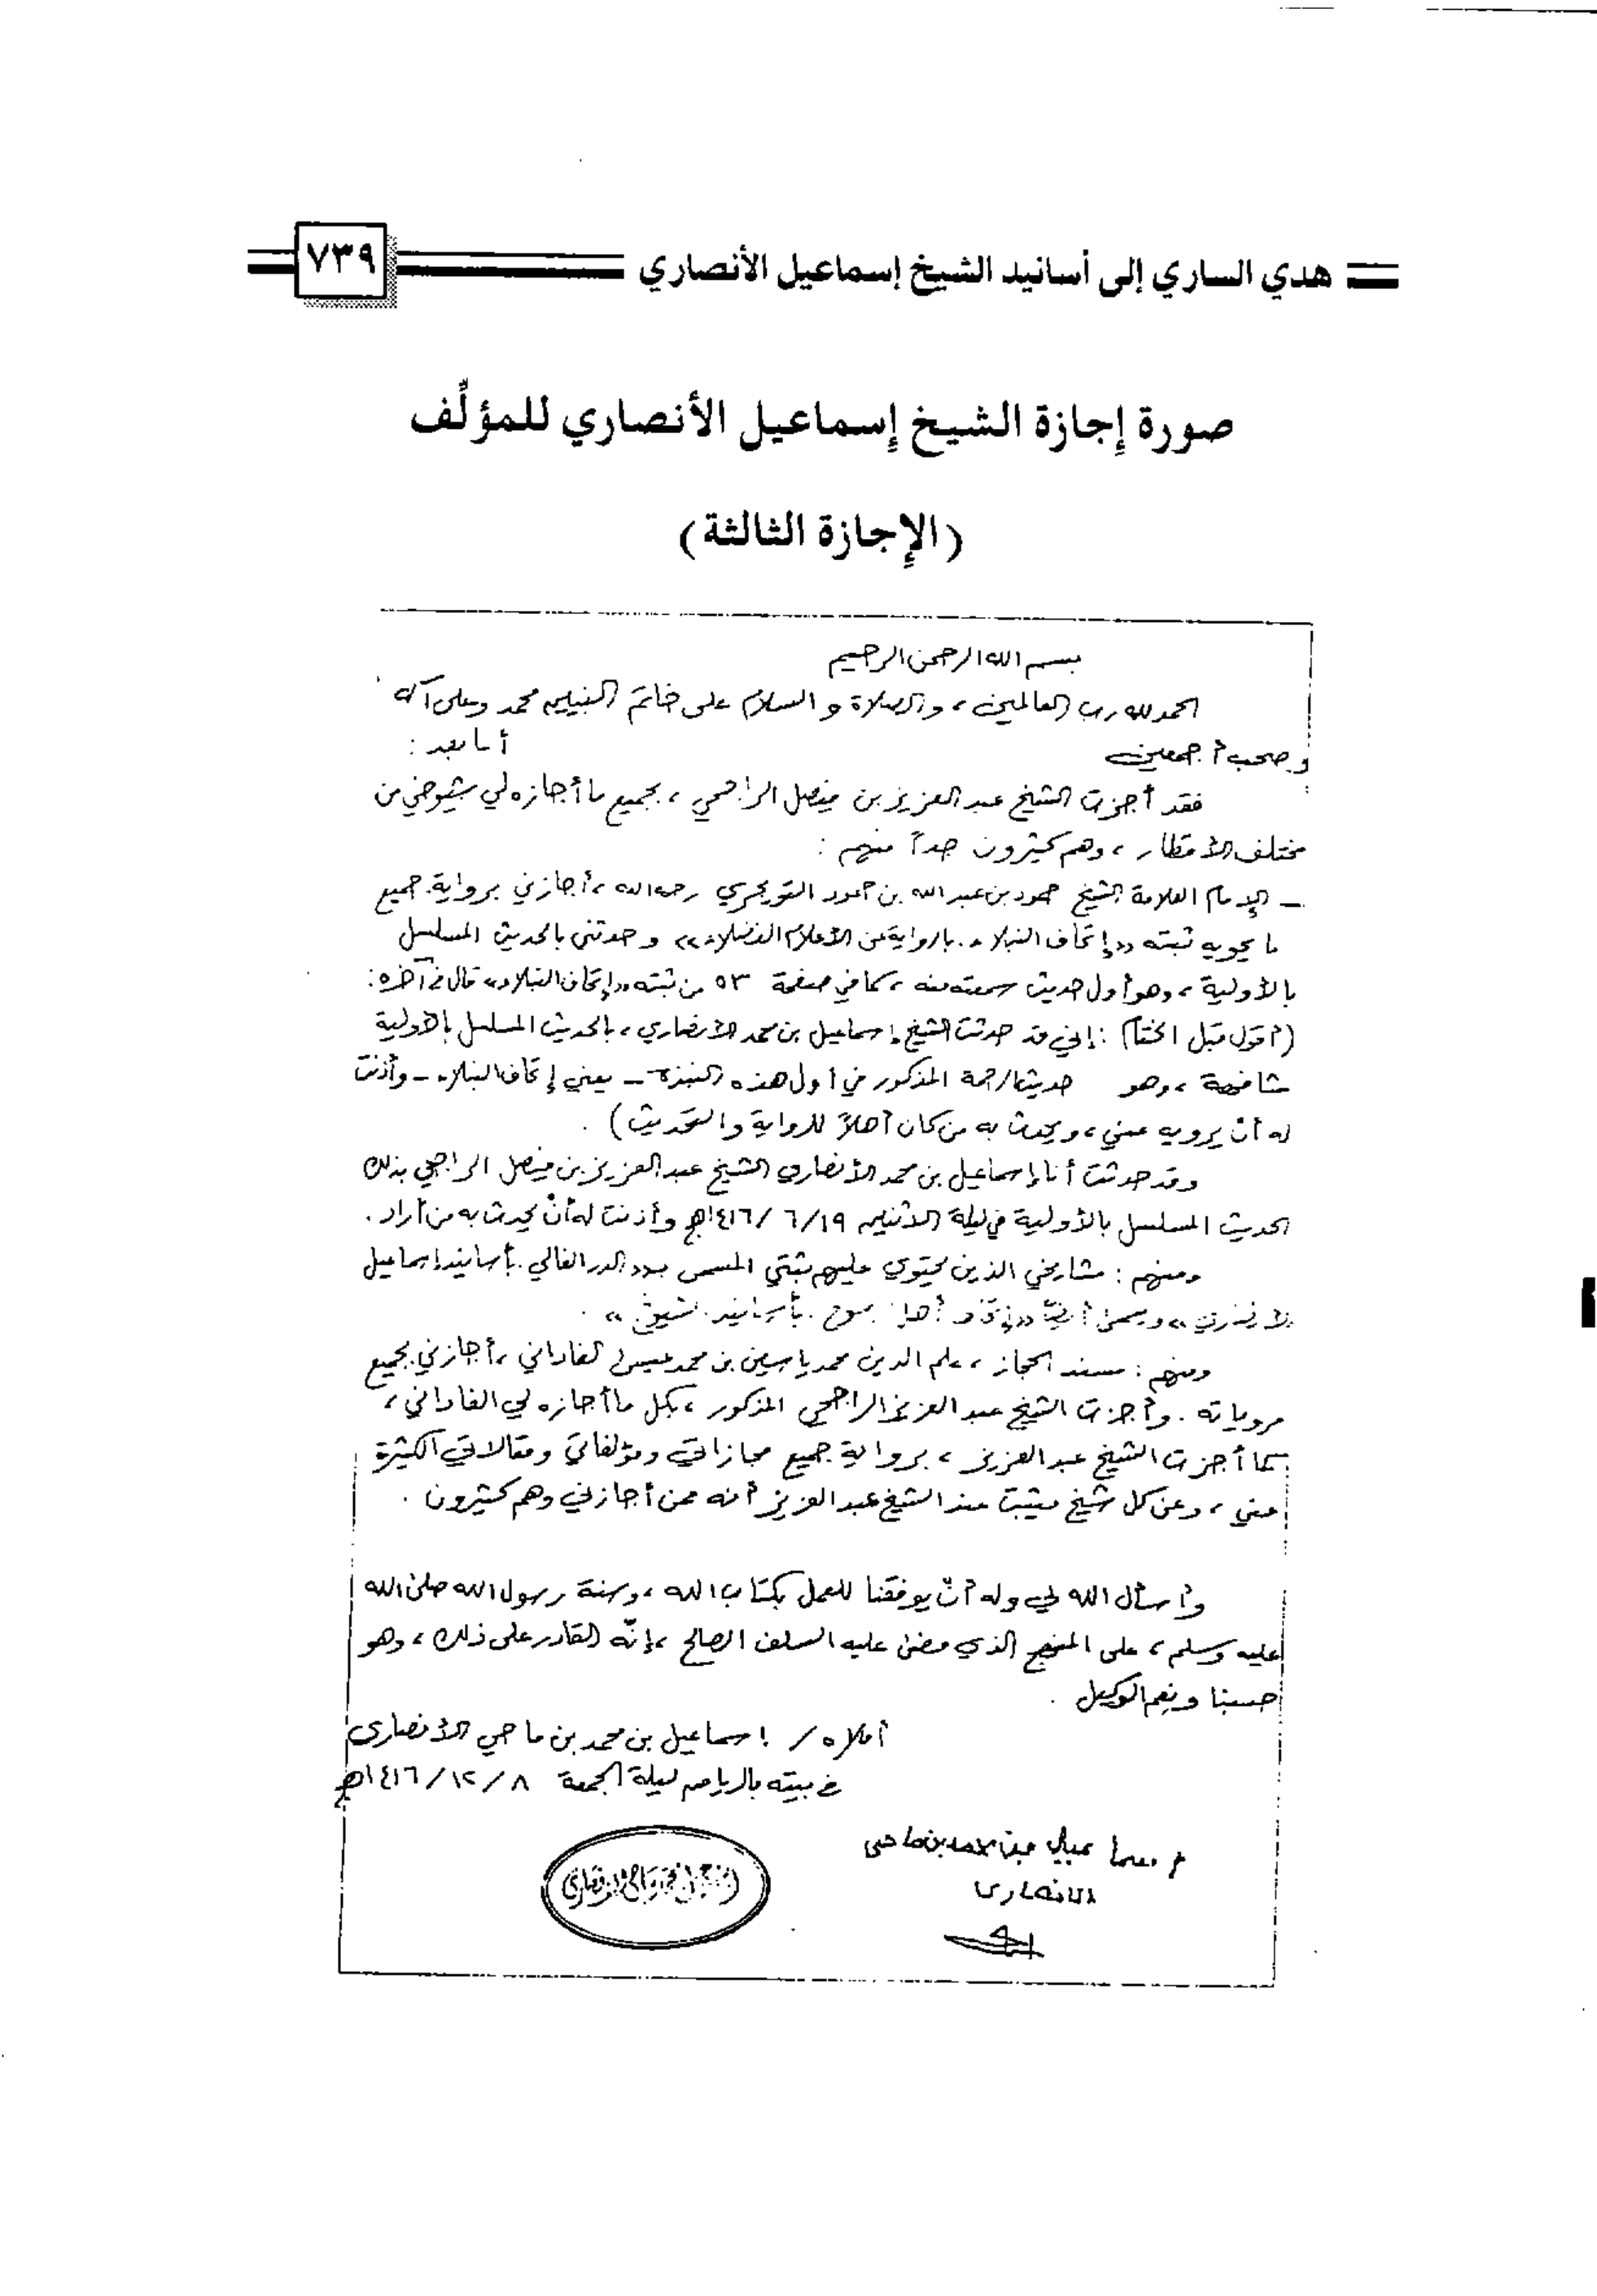 هدي الساري إلى أسانيد الشيخ إسماعيل الأنصاري
٧٣٩
صورة إجازة الشيخ إسماعيل الأنصاري للمؤلِّف
(الإجازة الثالثة)
بسم الله الرحمن الرحيم
الحمد لله رب العالمين، والصلاة والسلام على خاتم النبيين محمد وعلى آله
وصحبه أجمعين أما بعد:
فقد أجزت الشيخ عبد العزيز بن فيصل الراجحي، بجميع ما أجازه لي شيوخي من
مختلف الأقطار، وهم كثيرون جداً منهم:
ـ الإمام العلامة الشيخ حمود بن عبد الله بن حمود التويجري رحمه الله، أجازني برواية جميع
ما يحويه ثبته «إتحاف النبلاء بالرواية عن الأعلام الفضلاء» وحدثني بالحديث المسلسل
بالأولية، وهو أول حديث سمعته منه، كما في صفحة ٥٣ من ثبته «إتحاف النبلاء» قال في آخره:
(أقول قبل الختام: إني قد حدثت الشيخ إسماعيل بن محمد الأنصاري، بالحديث المسلسل بالأولية
مشافهة، وهو حديث الرحمة المذكور في أول هذه النبذة ـ يعني إتحاف النبلاء ـ وأذنت
له أن يرويه عني، ويحدث به من كان أهلاً للرواية والتحديث).
وقد حدثت أنا إسماعيل بن محمد الأنصاري الشيخ عبد العزيز بن فيصل الراجحي بذلك
الحديث المسلسل بالأولية في ليلة الاثنين ١٩/٦/١٤١٦هـ وأذنت له أنْ يحدث به من أراد.
ومنهم: مشايخي الذين يحتوي عليهم ثبتي المسمى بـ«الدر الغالي بأسانيد إسماعيل
الأنصاري» ويسمى أيضاً «بأسانيد الشيوخ».
ومنهم: مسند الحجاز، علم الدين محمد ياسين بن محمد عيسى الفاداني، أجازني بجميع
مروياته. وأجزت الشيخ عبد العزيز الراجحي المذكور، بكل ما أجازه لي الفاداني،
كما أجزت الشيخ عبد العزيز، برواية جميع مجازاتي ومؤلفاتي ومقالاتي الكثيرة
عني، وعن كل شيخ يثبت عند الشيخ عبد العزيز أنه ممن أجازني وهم كثيرون.
وأسأل الله لي وله أنْ يوفقنا للعمل بكتاب الله، وسنة رسول الله صلى الله
عليه وسلم، على المنهج الذي مضى عليه السلف الصالح، إنّه القادر على ذلك، وهو
حسبنا ونعم الوكيل.
أملاه / إسماعيل بن محمد بن ماحي الأنصاري
في بيته بالرياض ليلة الجمعة ٨/١٢/١٤١٦هـ
بن ماحي
الانصاري